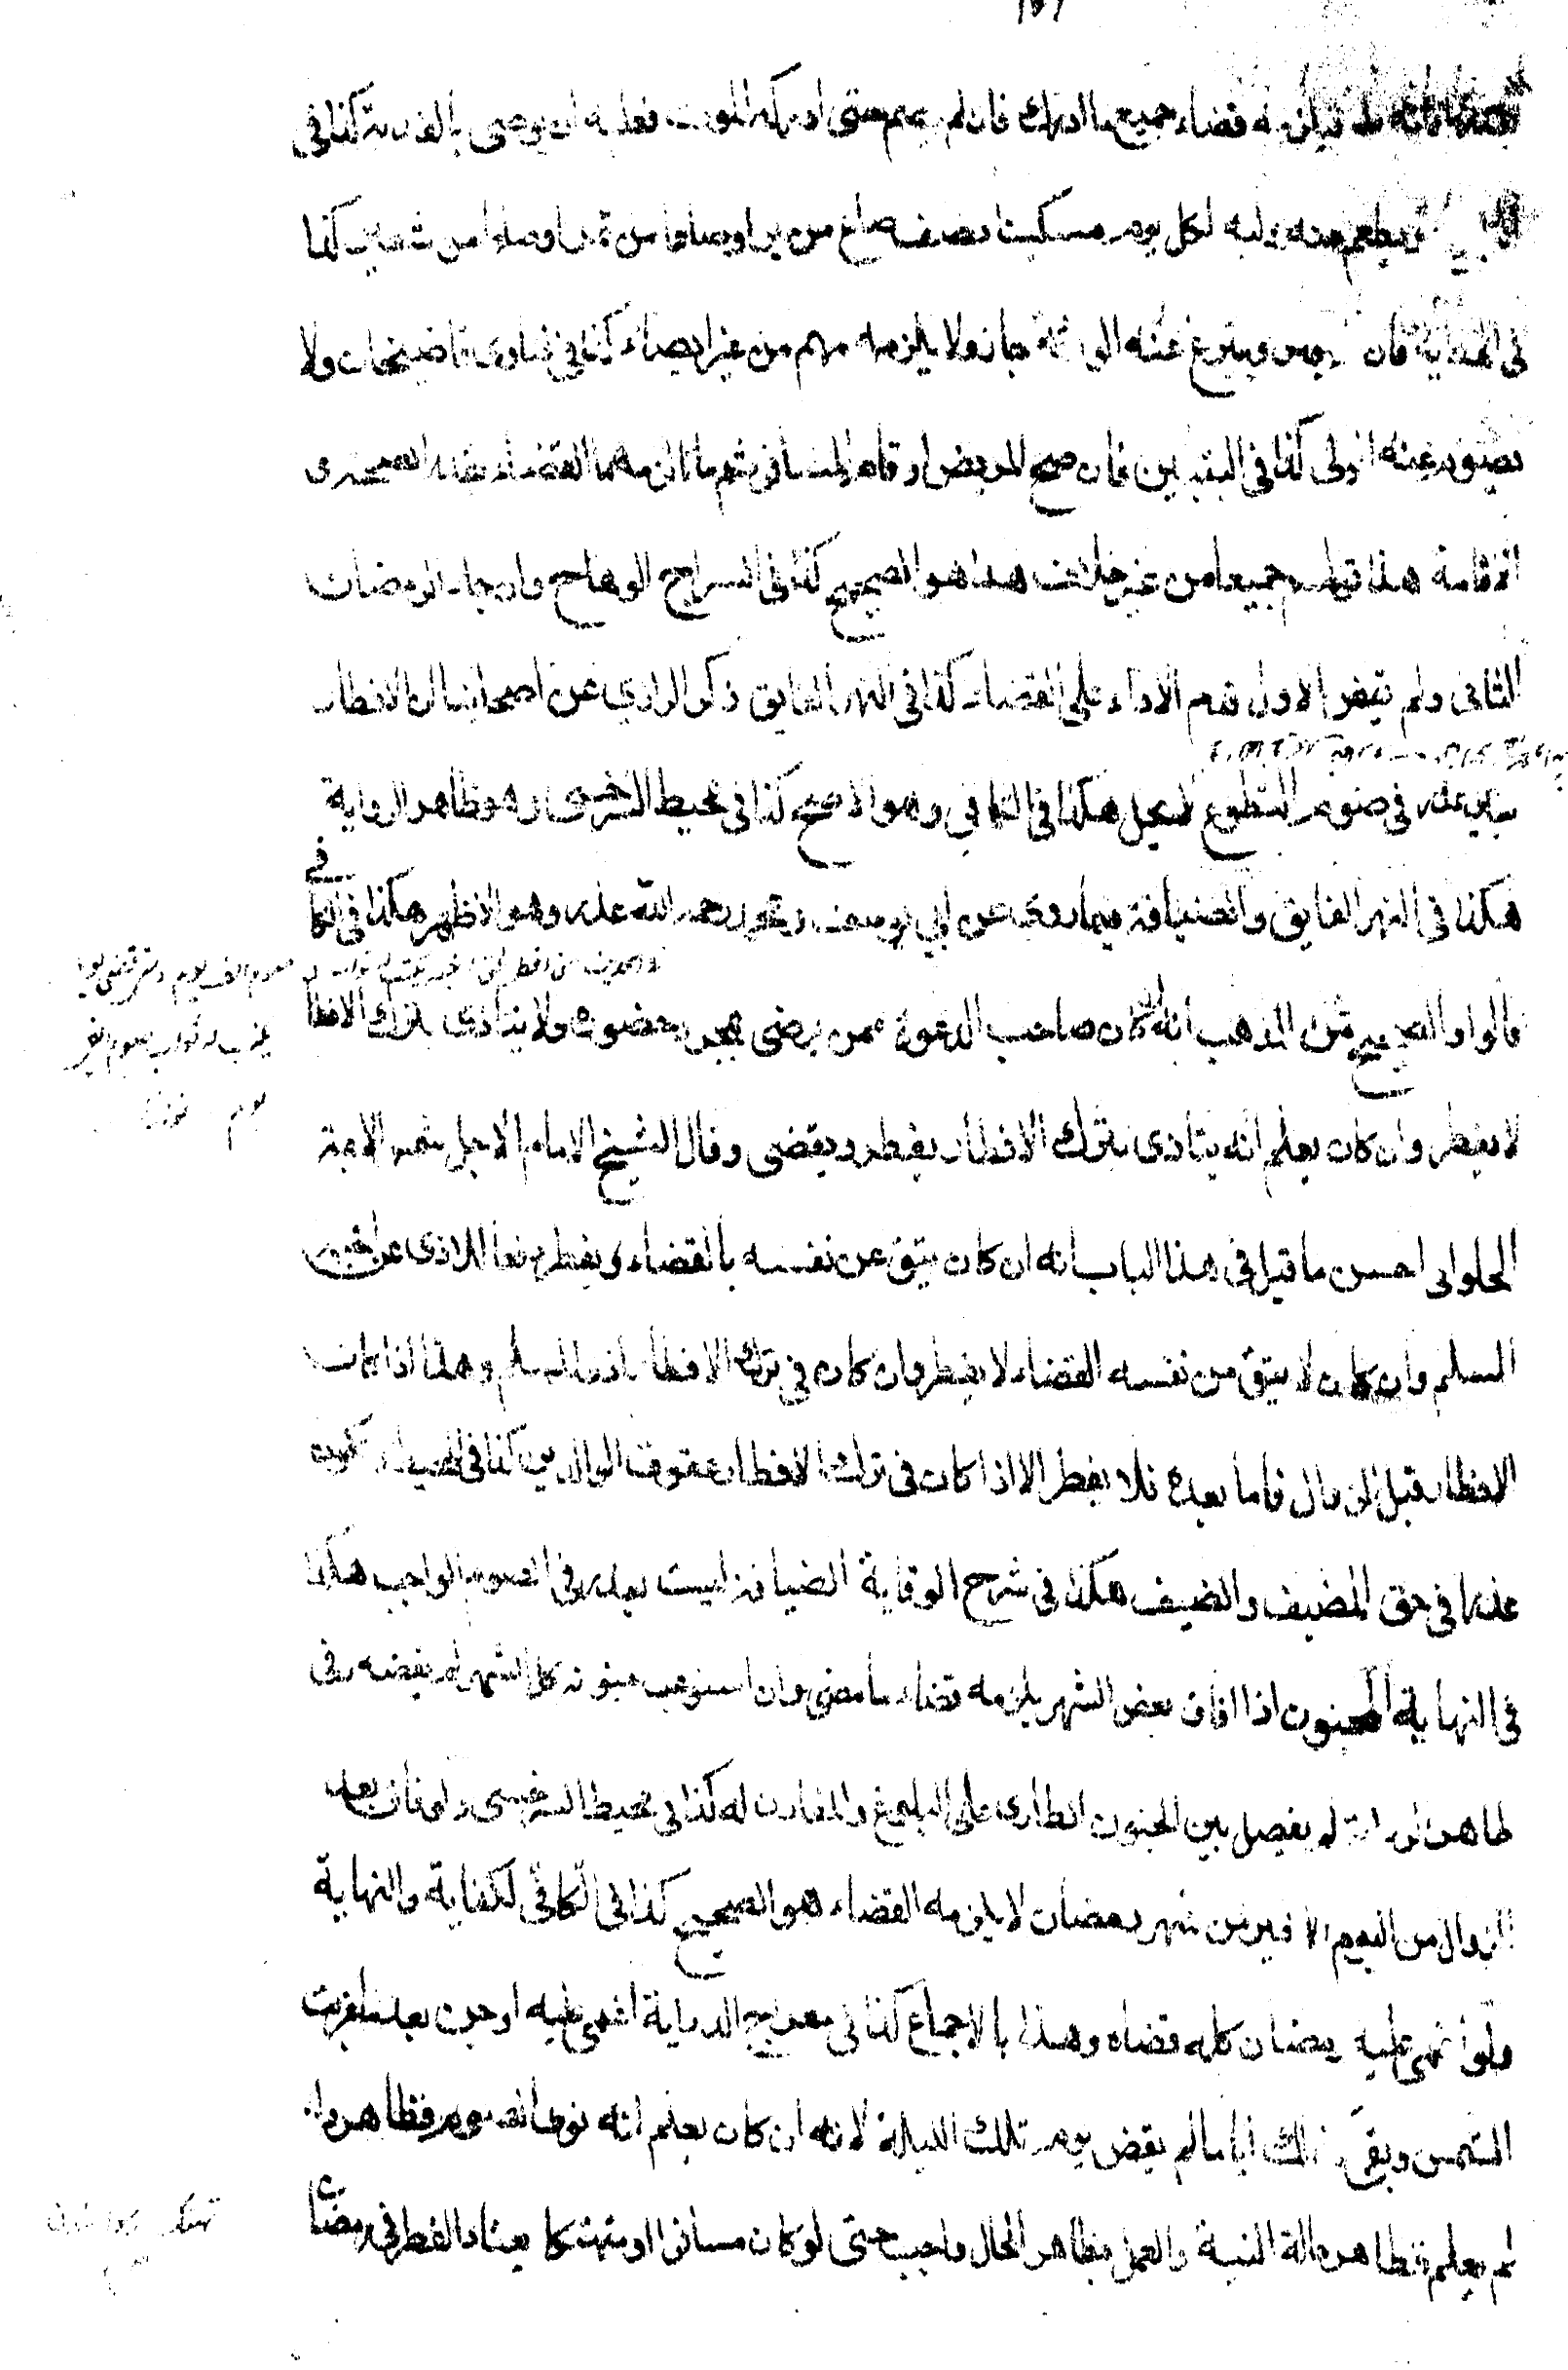 فيلزمه قضاء جميع ما ادرك فان لم يصم حتى ادركه الموت فعليه ان يوصي بالفدية كذا في
ويطعم عنه وليه لكل يوم مسكينا نصف صاع من بر او صاعا من تمر او صاعا من شعير كذا
في الهداية فان لم يوص وتبرع عنه الورثة جاز ولا يلزمهم من غير ايصاء كذا في فتاوى قاضيخان ولا
يصوم عنه الولي كذا في التبيين فان صح المريض او اقام المسافر ثم ماتا لزمهما القضاء بقدر الصحة و
الاقامة هذا قولهم جميعا من غير خلاف هذا هو الصحيح كذا في السراج الوهاج وان جاء الرمضان
الثاني ولم يقض الاول قدم الاداء على القضاء كذا في النهر الفايق ذكر الرازي عن اصحابنا ان الافطار
بغير عذر في صوم التطوع لا يحل هكذا في الكافي وهو الاصح كذا في محيط السرخسي وهو ظاهر الرواية
هكذا في النهر الفايق والضيافة فيما روي عن ابي يوسف ومحمد رحمه الله عذر وهو الاظهر هكذا في الكافي
قالوا والصحيح من المذهب انه ان كان صاحب الدعوة ممن يرضى بمجرد حضوره ولا يتاذى بترك الافطا
لا يفطر وان كان يعلم انه يتاذى بترك الافطار يفطر ويقضي وقال الشيخ الامام الاجل شمس الايمة
الحلواي احسن ما قيل في هذا الباب انه ان كان يثق عن نفسه بالقضاء يفطر دفعا للاذى عن اخيه
المسلم وان كان لا يثق من نفسه القضاء لا يفطر وان كان في ترك الافطار اذى المسلم وهذا اذا كان
الافطار قبل الزوال فاما بعده فلا يفطر الا اذا كان في ترك الافطار عقوق الوالدين كذا في تكون
عذرا في حق المضيف والضيف هكذا في شرح الوقاية الضيافة ليست بعذر في الصوم الواجب هكذا
في النهاية المجنون اذا افاق بعض الشهر يلزمه قضاء ما مضى وان استوعب جنونه كل الشهر لم يقضه وفي
ظاهر الرواية لم يفصل بين الجنون الطارى على البلوغ والمقارن له كذا في محيط السرخسي ولو فاق بعد
الزوال من اليوم الاخير من شهر رمضان لا يلزمه القضاء هو الصحيح كذا في الكافي لكفاية والنهاية
ولو اغمي عليه رمضان كله قضاه وهذا بالاجماع كذا في معراج الدراية اغمي عليه او جن بعد ما غربت
الشمس وبقي كذلك اياما لم يقض يوم تلك الليلة لانه ان كان يعلم انه نوى الصوم فظاهر وان
لم يعلم فظاهر حالة النية والعمل بظاهر الحال واجب حتى لو كان مسافرا او متهتكا يعتاد الفطر في رمضان